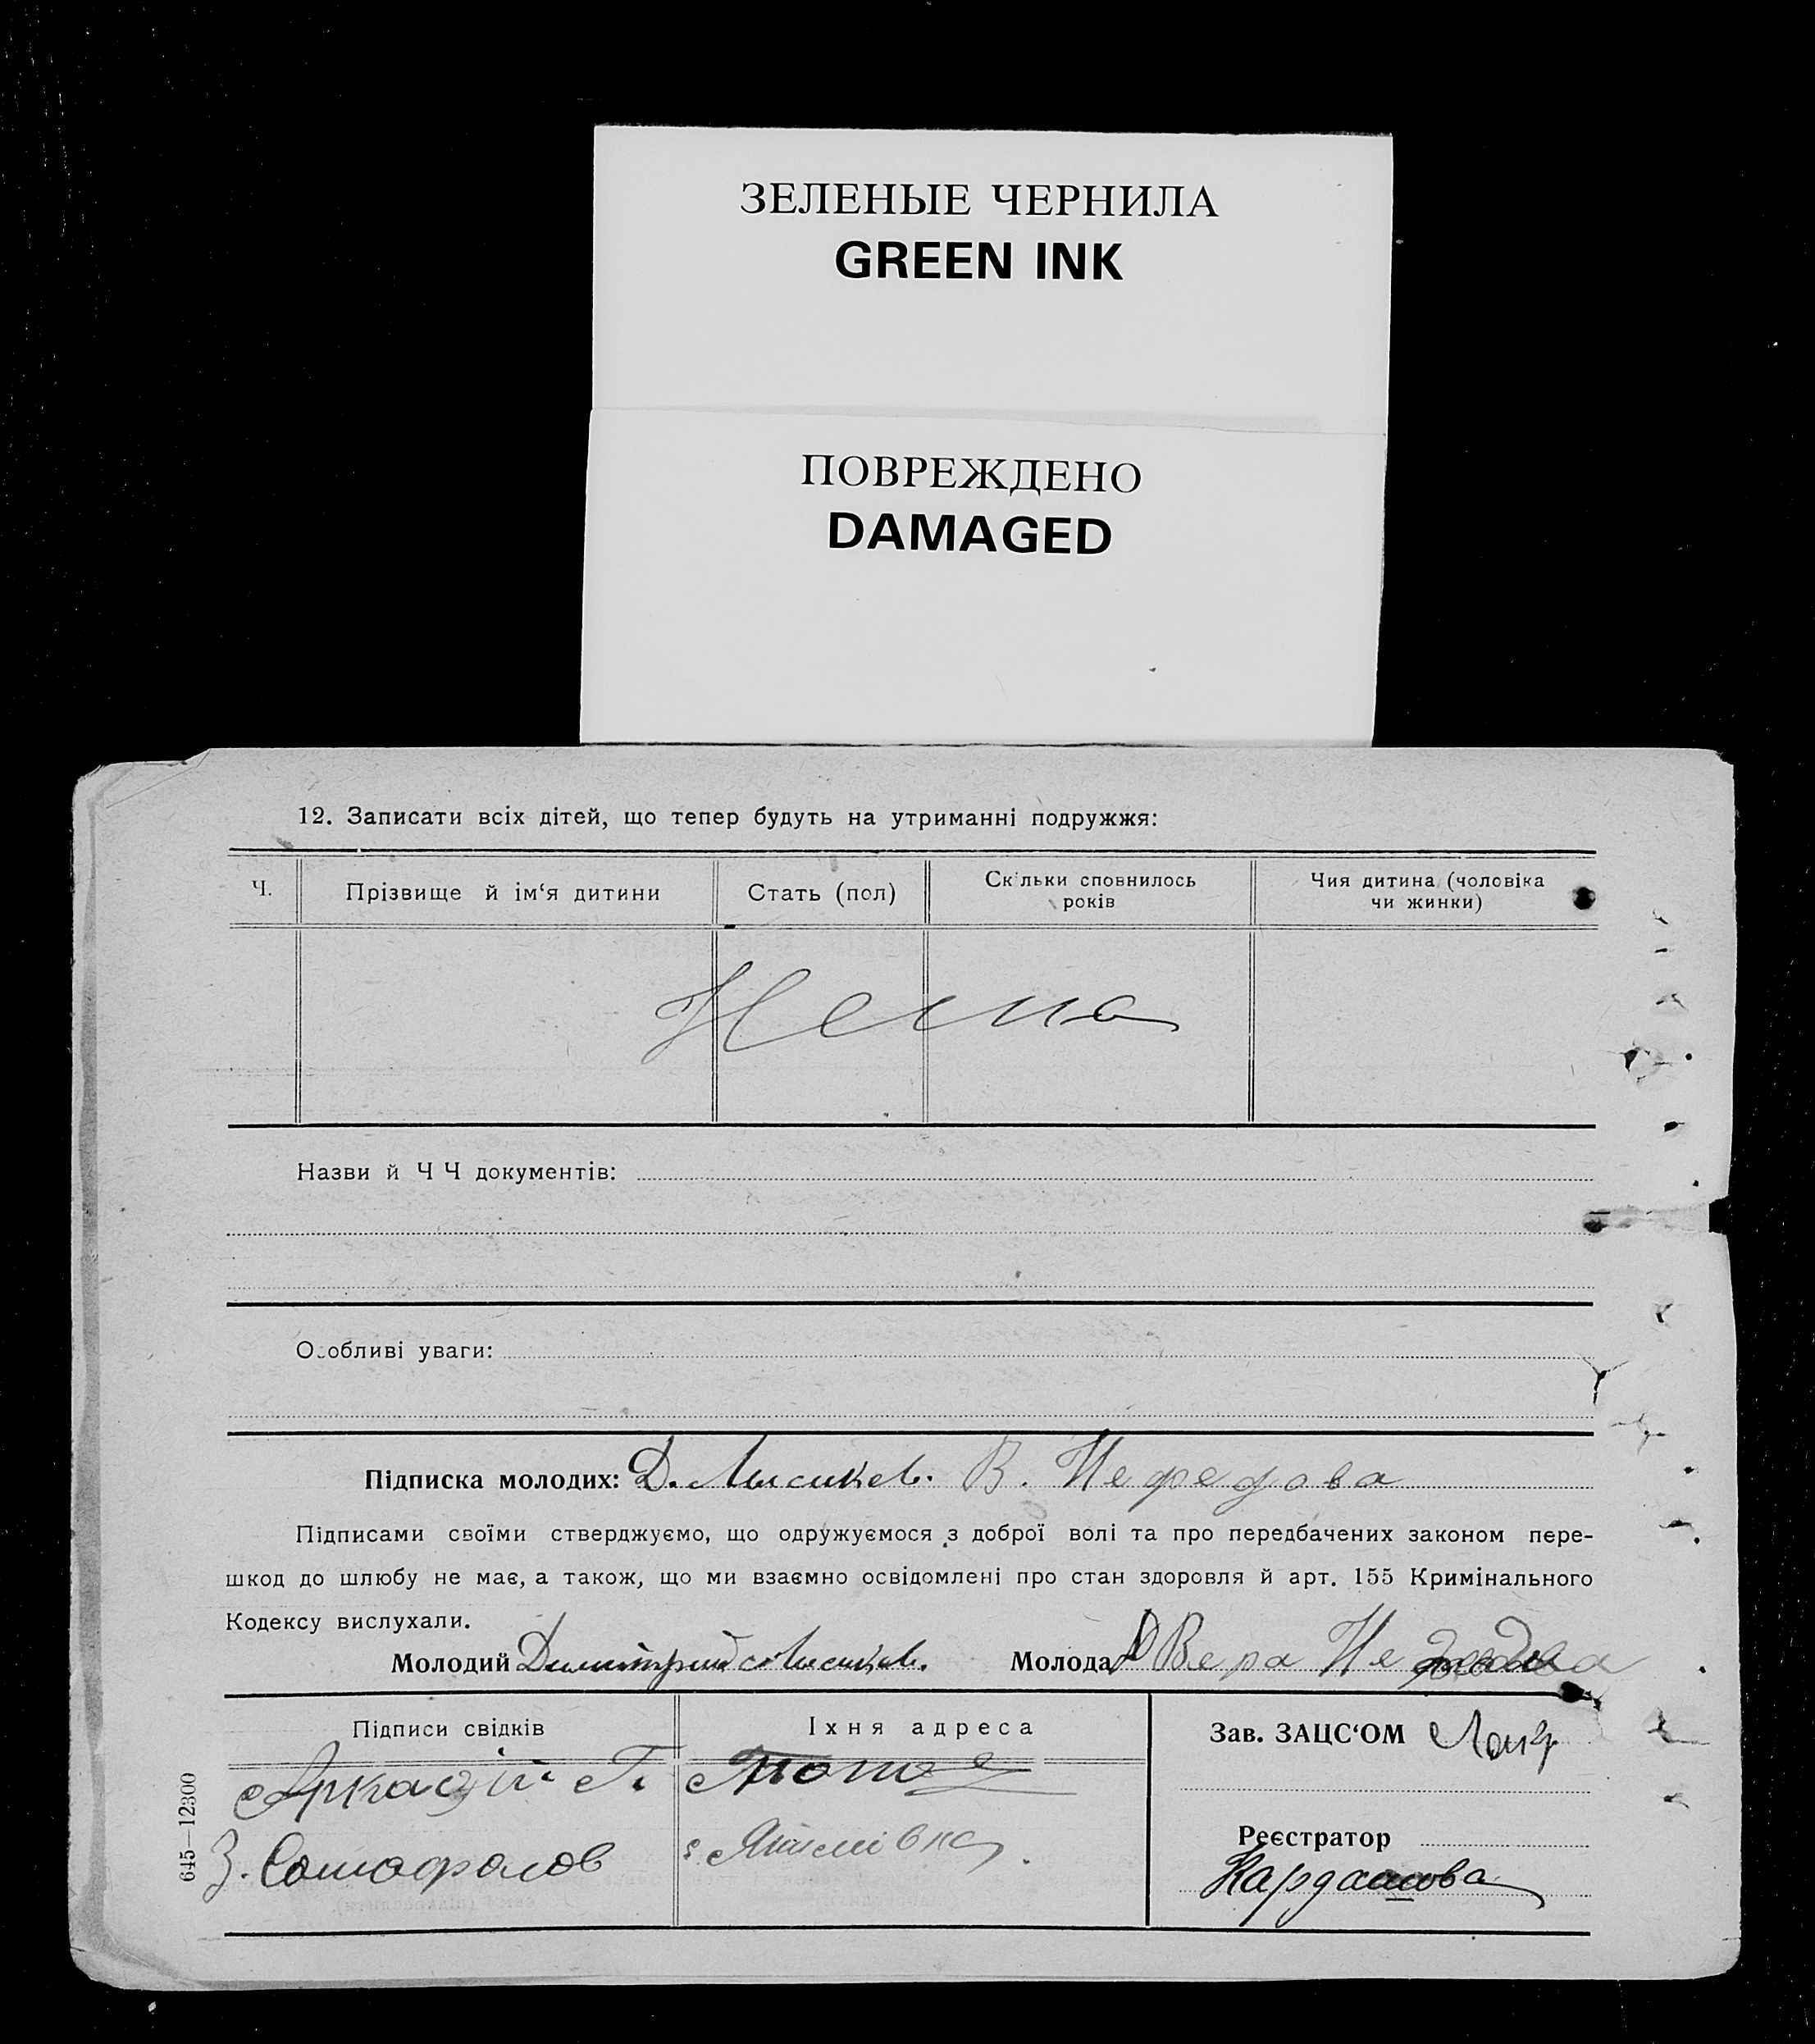 ЗЕЛЕНЫЕ ЧЕРНИЛА
GREEN INK
ПОВРЕЖДЕНО
DAMAGED
12. Записати всіх дітей, що тепер будуть на утриманні подружжя:
Ч.
Прізвище й ім‘я дитини
Стать (пол)
Скільки сповнилось
років
Чия дитина (чоловіка
чи жинки)
Нема
Назви й Ч Ч документів:
Особливі уваги:
Підписка молодих: Д. В. Нефедова
Підписами своїми стверджуємо, що одружуємося з доброї волі та про передбачених законом пере-
шкод до шлюбу не має, а також, що ми взаємно освідомлені про стан здоровля й арт. 155 Кримінального
Кодексу вислухали.
Молодий Димитрий Молода Вера
Підписи свідків
Їхня адреса
Аркадій Г.
З.
Зав. ЗАЦС‘ОМ
Реєстратор
Кардашова
645—12300